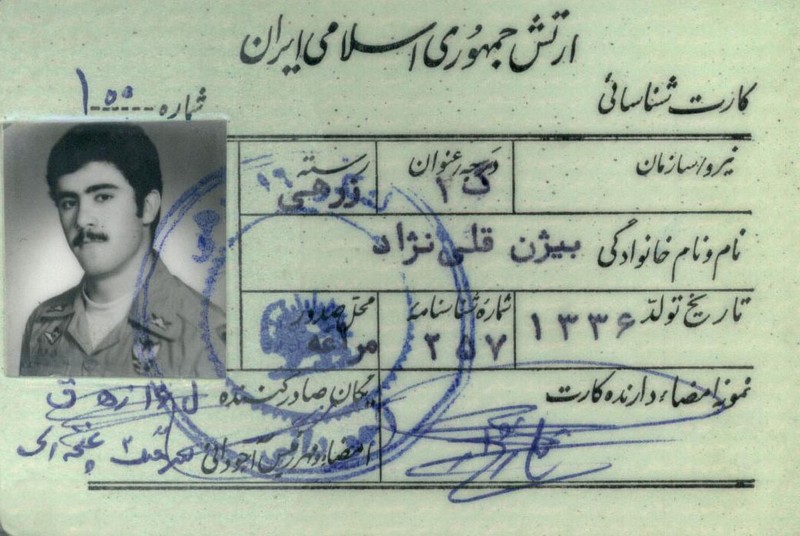 ارتش جمهوری اسلامی ایران
کارت شناسائی
شماره ۱۰۰
نیرو/سازمان
درجه/عنوان
رسته زرهی
نام و نام خانوادگی بیژن قلی نژاد
تاریخ تولد ۱۳۳۶
شماره شناسنامه ۲۵۷
محل صدور مراغه
نمونه امضاء دارنده کارت
یگان صادر کننده
امضاء و مهر رئیس آجودانی